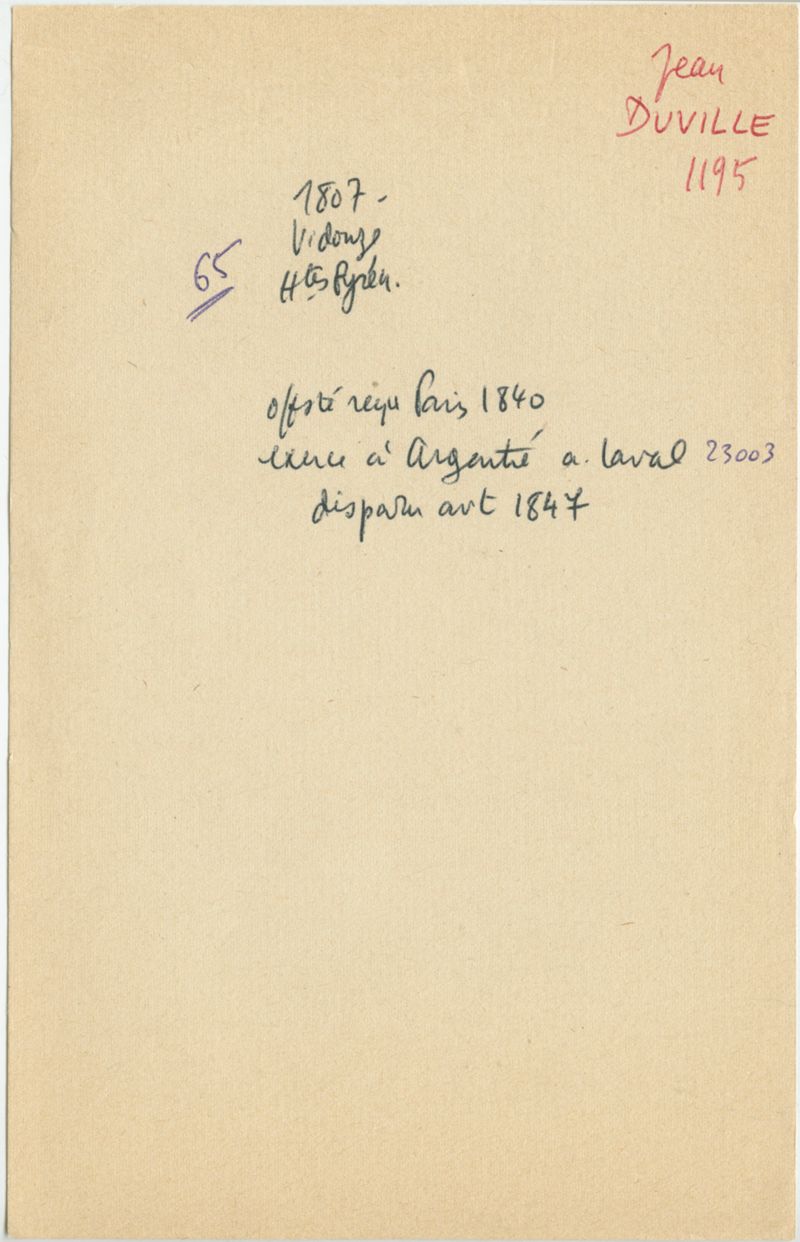 Jean
DUVILLE
1195
1807 -
Vidouze
65
Htes Pyrén.
offsté reçu Paris 1840
exerce à Argentré a. Laval 23003
disparu avt 1847